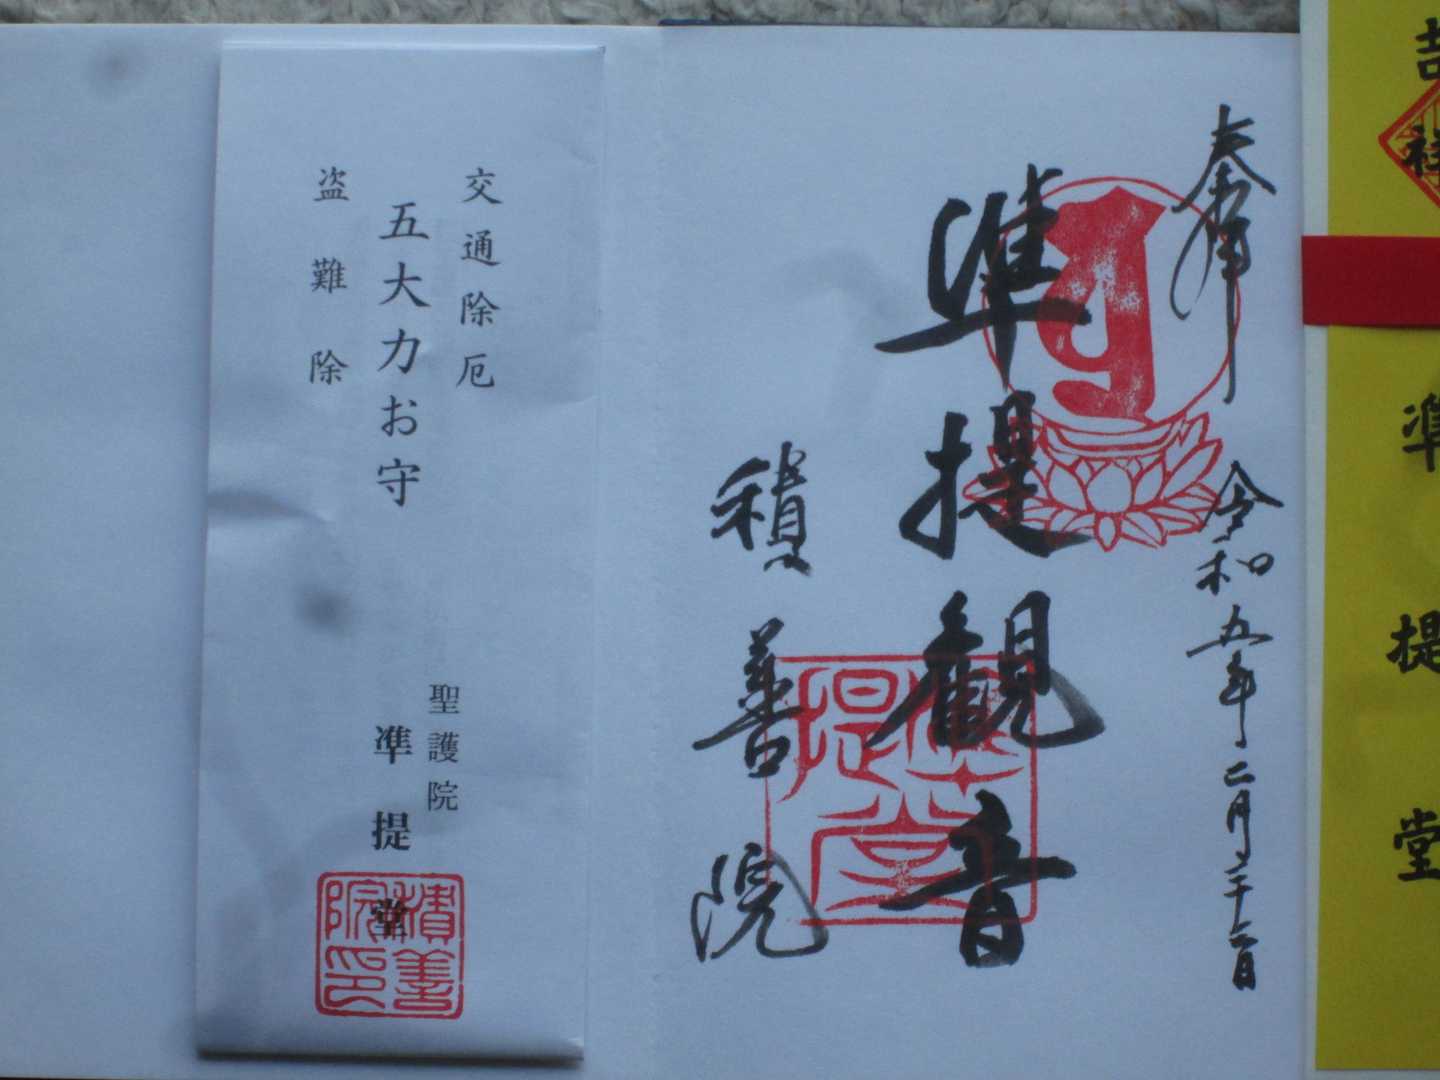 吉祥
準提堂
奉拝
令和五年二月二十三日
準提観音
積善院
準提堂
交通除厄
五大力お守
盗難除
聖護院
準提堂
積善院印